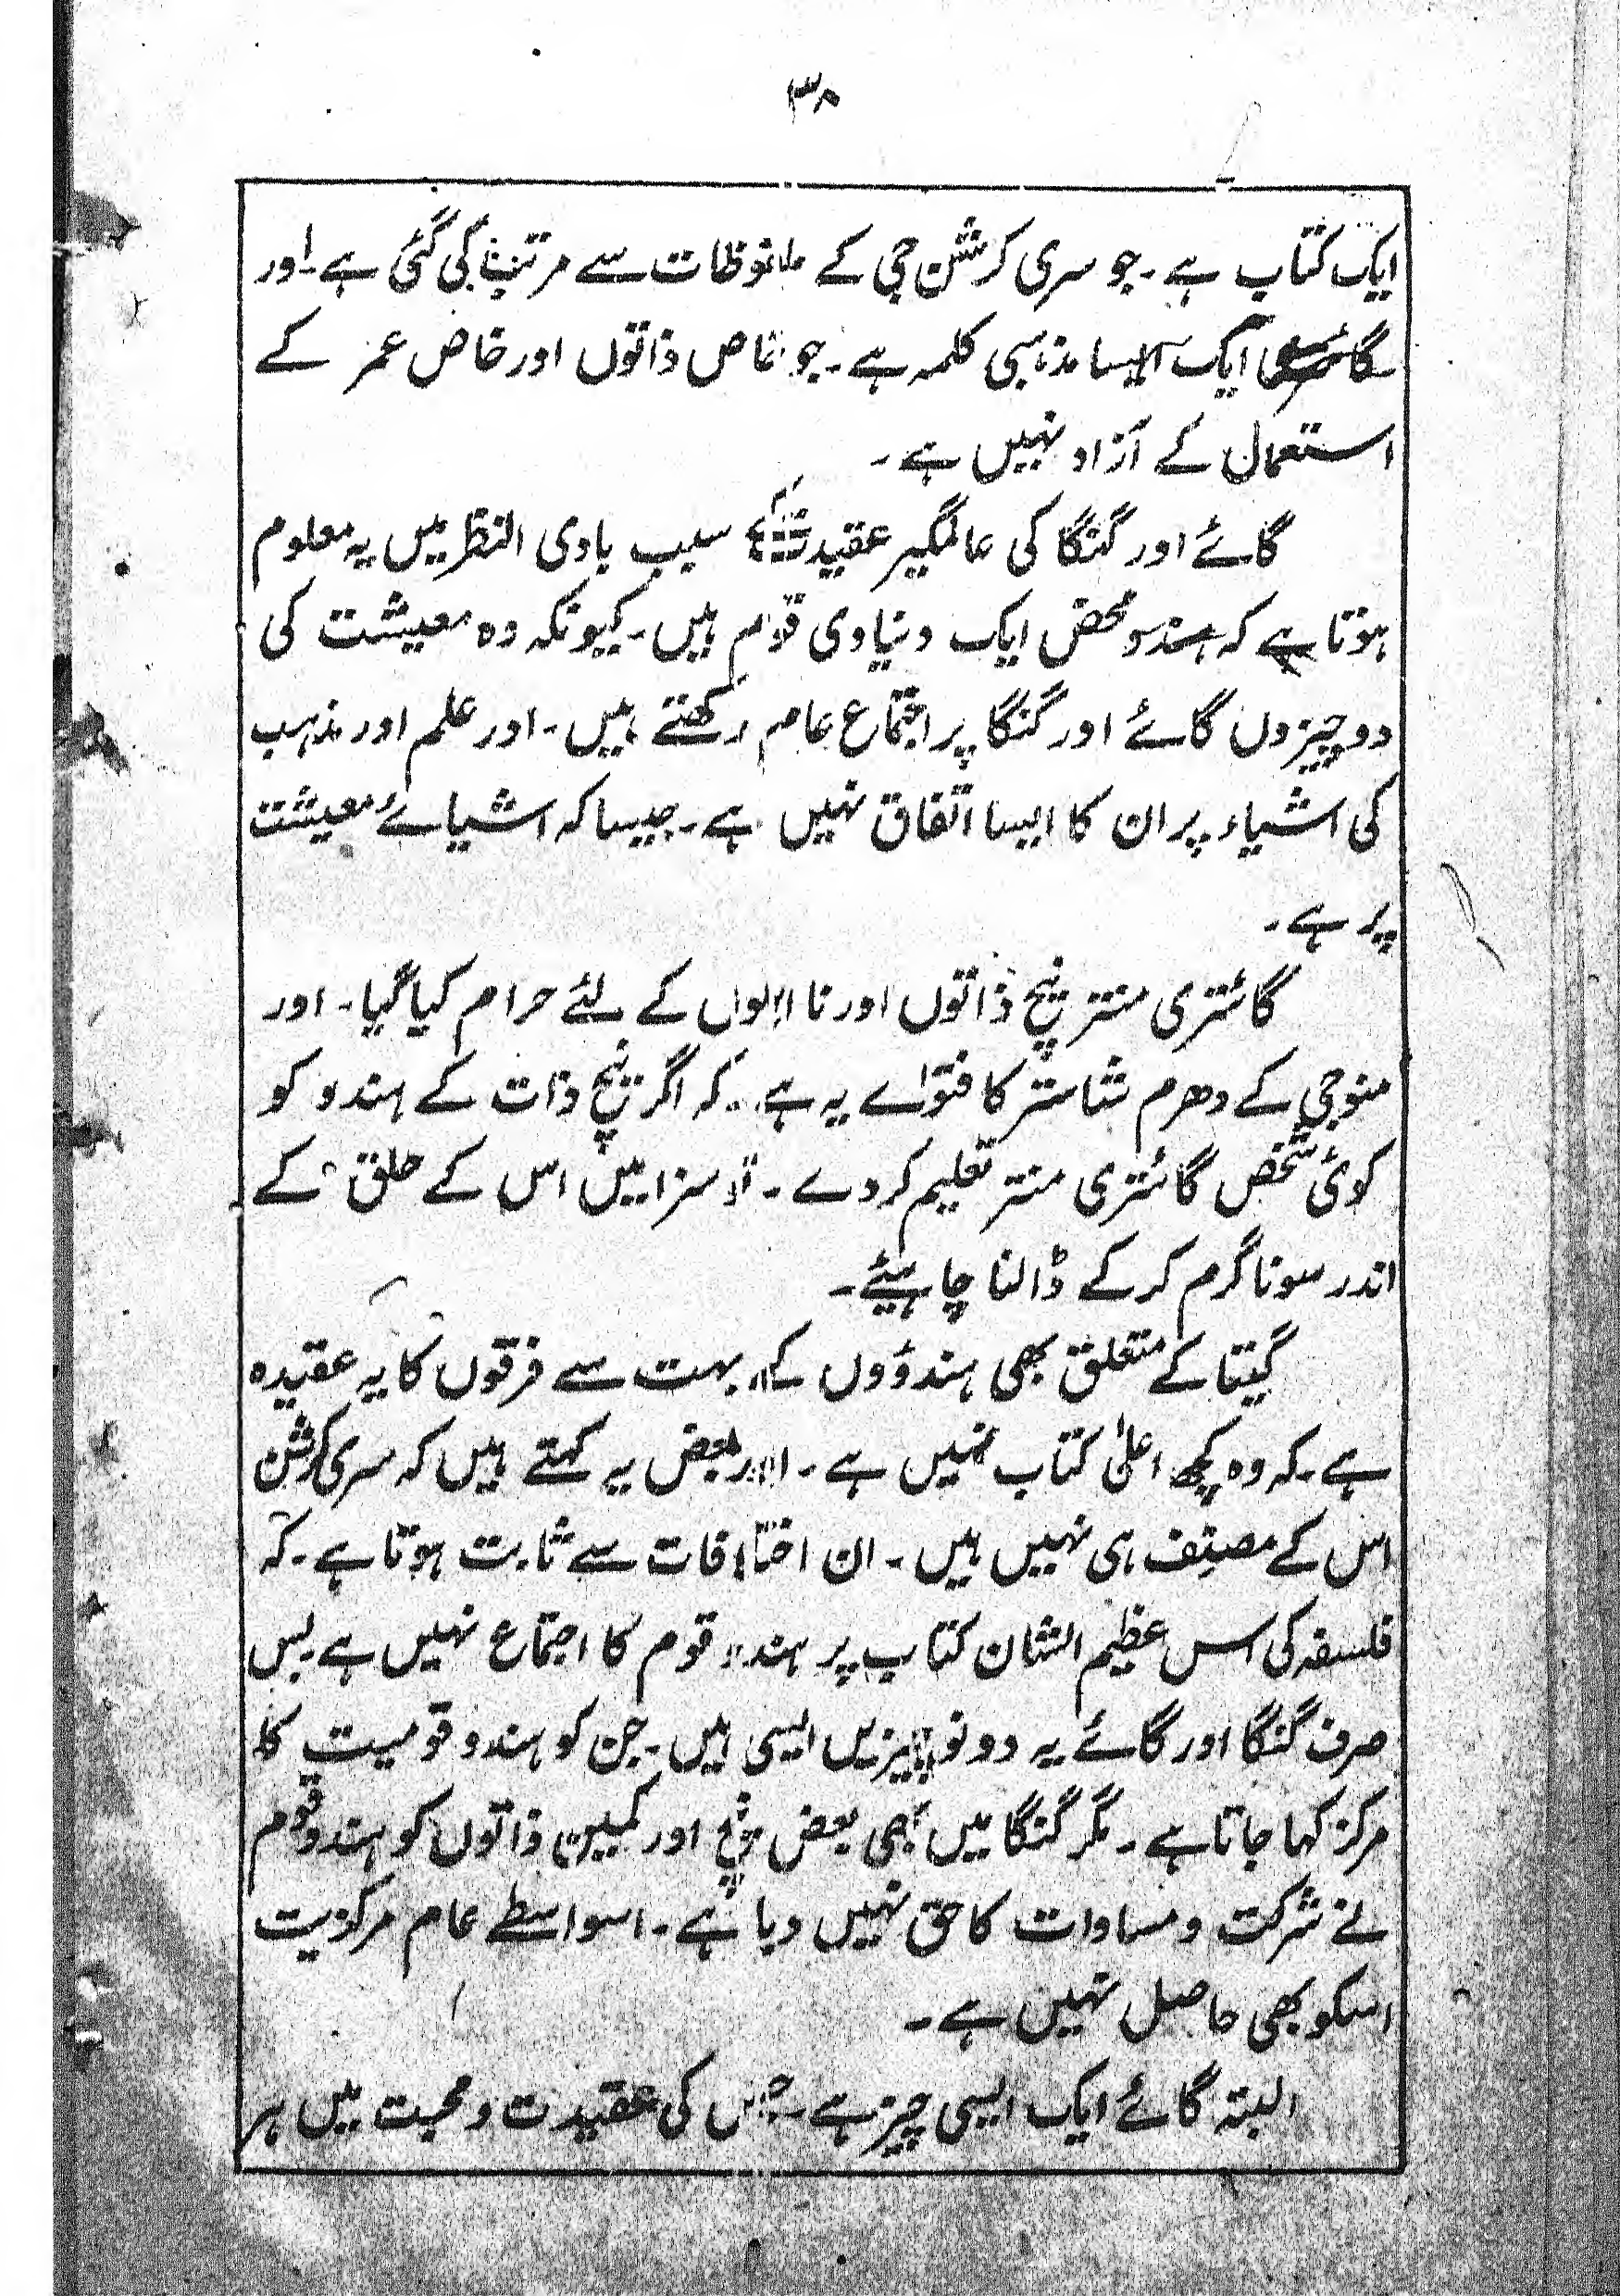 ۳۸
ایک کتاب ہے۔ جو سری کرشن جی کے ملفوظات سے مرتب کی گئی ہے۔ اور
گائتری ایک ایسا مذہبی کلمہ ہے۔ جو خاص ذاتوں اور خاص عمر کے
استعمال کے آزاد نہیں ہے۔
گائے اور گنگا کی عالمگیر عقیدت سبب بادی النظر میں یہ معلوم
ہوتا ہے کہ ہندو محض ایک دنیاوی قوم ہیں۔ کیونکہ وہ معیشت کی
دو چیزوں گائے اور گنگا پر اجتماع عام رکھتے ہیں۔ اور علم اور مذہب
کی اشیاء پر ان کا ایسا اتفاق نہیں ہے۔ جیسا کہ اشیائے معیشت
پر ہے۔
گائتری منتر نیچ ذاتوں اور نااہلوں کے لئے حرام کیا گیا۔ اور
منوجی کے دھرم شاستر کا فتواے یہ ہے۔ کہ اگر نیچ ذات کے ہندو کو
کوئی شخص گائتری منتر تعلیم کر دے۔ تو سزا میں اس کے حلق کے
اندر سونا گرم کر کے ڈالنا چاہیئے۔
گیتا کے متعلق بھی ہندوؤں کے بہت سے فرقوں کا یہ عقیدہ
ہے۔ کہ وہ کچھ اعلیٰ کتاب نہیں ہے۔ اور بعض یہ کہتے ہیں کہ سری کرشن
اس کے مصنف ہی نہیں ہیں۔ ان اختلافات سے ثابت ہوتا ہے۔ کہ
فلسفہ کی اس عظیم الشان کتاب پر ہندو قوم کا اجتماع نہیں ہے بس
صرف گنگا اور گائے یہ دونو چیزیں ایسی ہیں۔ جن کو ہندو قومیت کا
مرکز کہا جاتا ہے۔ مگر گنگا میں بھی بعض نیچ اور کمین ذاتوں کو ہندو قوم
نے شرکت و مساوات کا حق نہیں دیا ہے۔ اسواسطے عام مرکزیت
اسکو بھی حاصل نہیں ہے۔
البتہ گائے ایک ایسی چیز ہے۔ جس کی عقیدت و محبت میں ہر